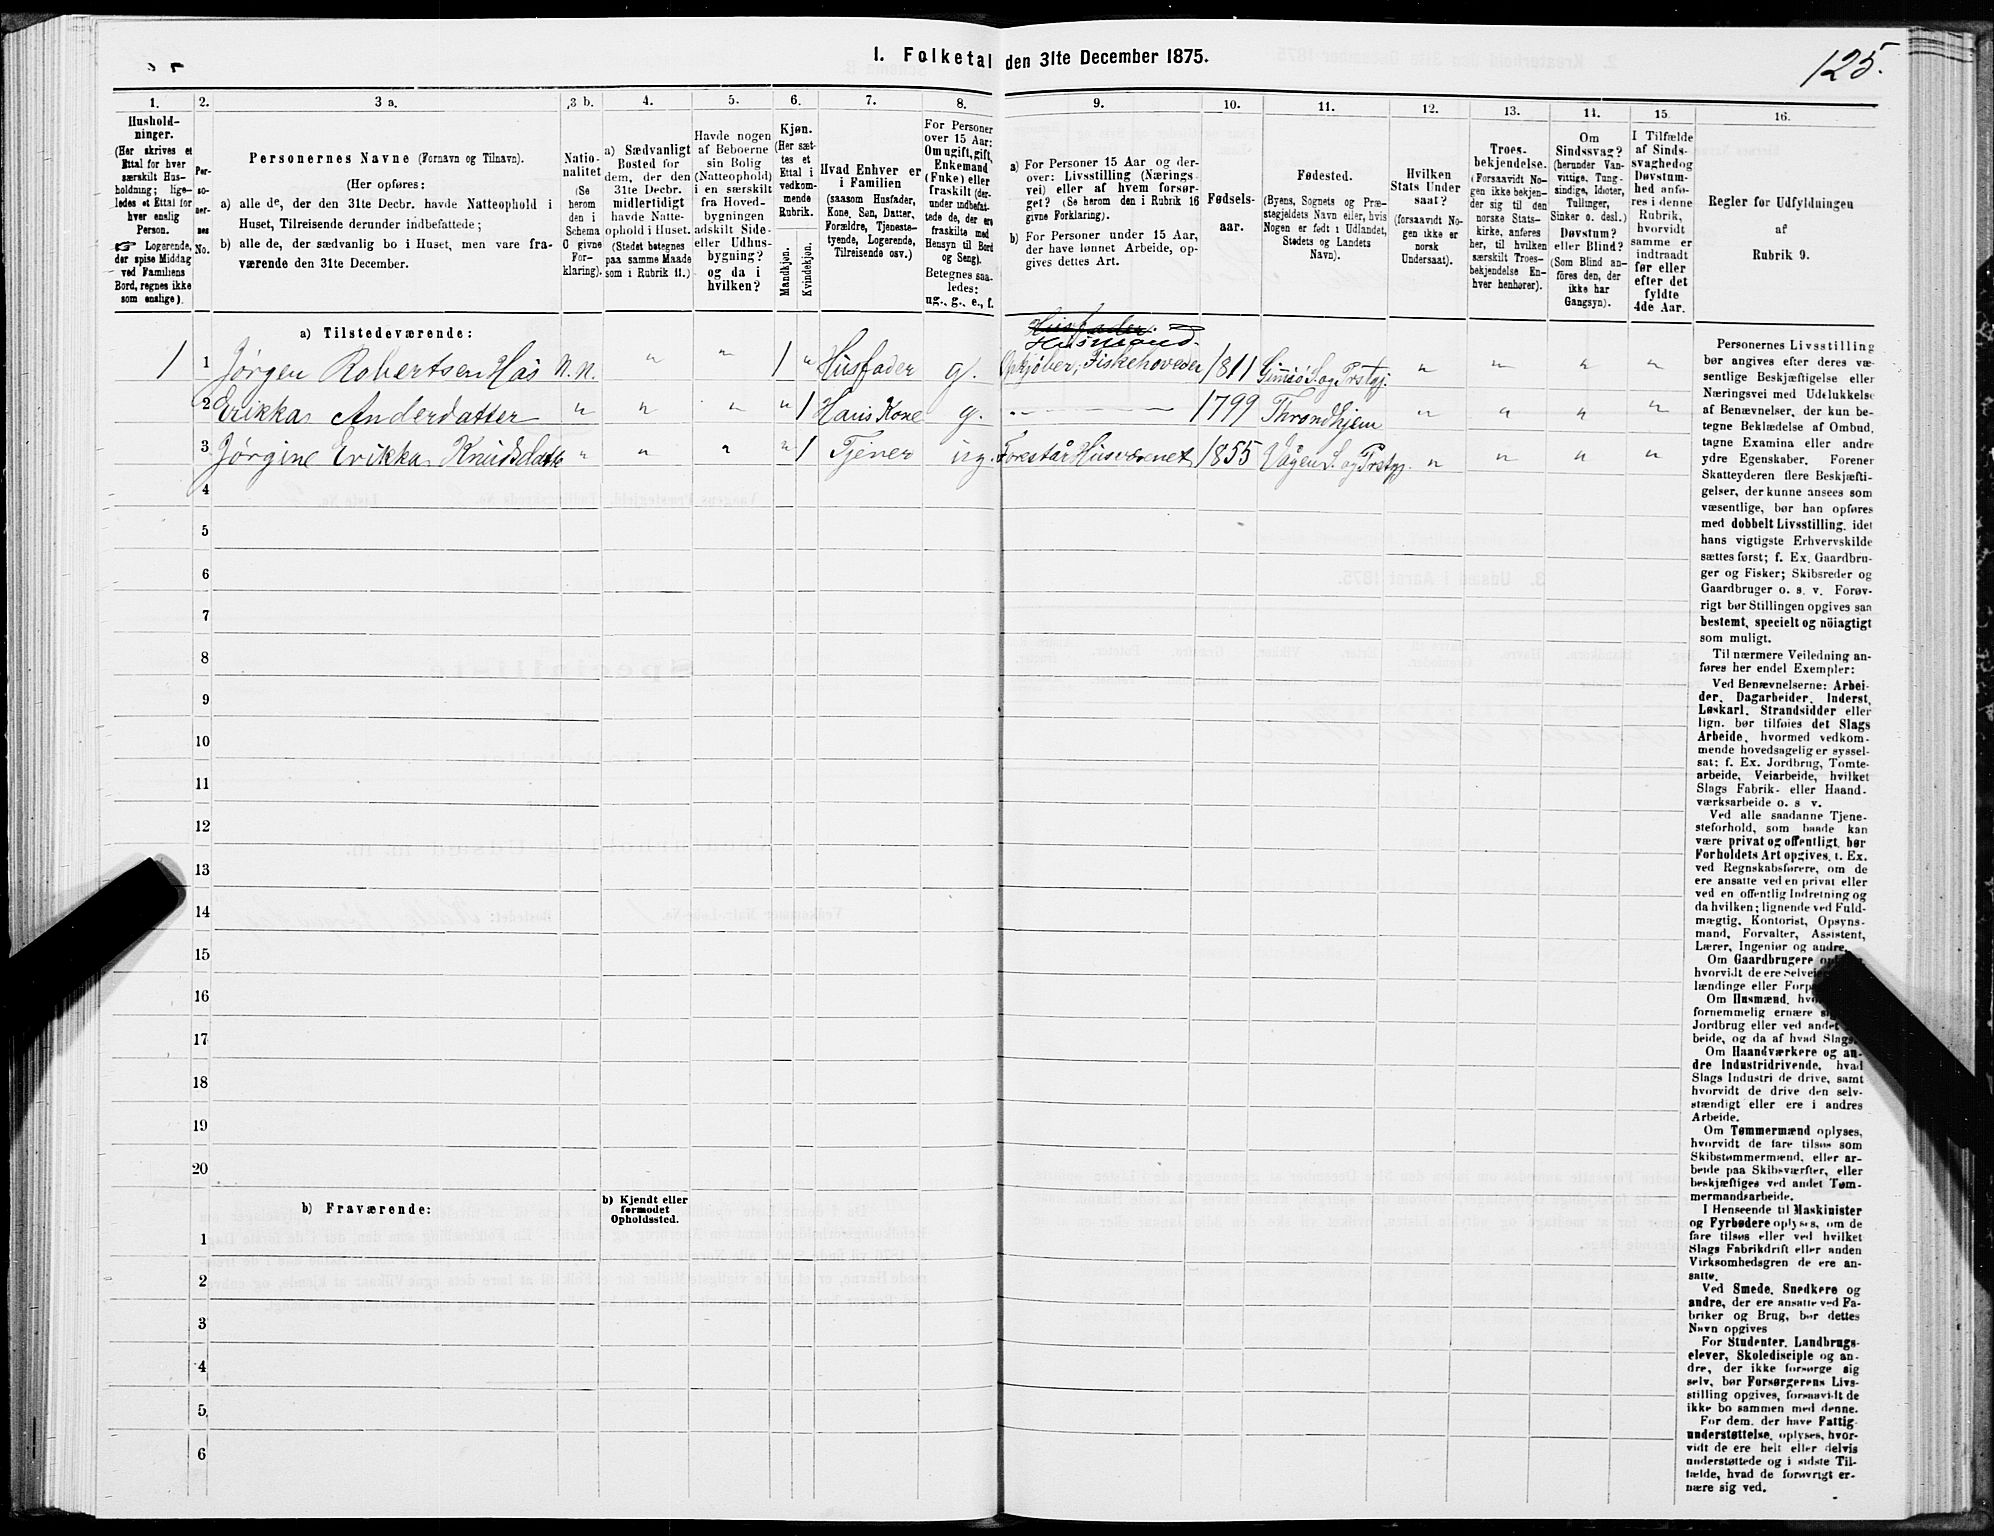 I. Folketal den 31te December 1875.
125.
1.
Hushold-
ninger.
(Her skrives et
Ettal for hver
særskilt Hus-
holdning; lige-
ledes et Ettal for
hver enslig
Person.
☞ Logerende,
der spise Middag
ved Familiens
Bord, regnes ikke
som enslige).
2.
Per-
so-
ner-
nes
No.
3 a.
Personernes Navne (Fornavn og Tilnavn).
(Her opføres:
a) alle de, der den 31te Decbr. havde Natteophold i
Huset, Tilreisende derunder indbefattede;
b) alle de, der sædvanlig bo i Huset, men vare fra-
værende den 31te December.
3 b.
Natio-
nalitet
(Se
herom
den i
Schema
C givne
For-
klaring).
4.
a) Sædvanligt
Bosted for
dem, der den
31te Decbr.
midlertidigt
havde Natte-
ophold i Huset.
(Stedet betegnes
paa samme Maade
som i Rubrik 11.)
5.
Havde nogen
af Beboerne
sin Bolig
(Natteophold)
i en særskilt
fra Hoved-
bygningen
adskilt Side-
eller Udhus-
bygning?
og da i
hvilken?
6.
Kjøn.
(Her sæt-
tes et
Ettal i
vedkom-
mende
Rubrik.
Mandkjøn.
Kvindekjøn.
7.
Hvad Enhver er
i Familien
(saasom Husfader,
Kone, Søn, Datter,
Forældre, Tjeneste-
tyende, Logerende,
Tilreisende osv.)
8.
For Personer
over 15 Aar:
Om ugift, gift,
Enkemand
(Enke) eller
fraskilt (der-
under indbefat-
tede de, der ere
fraskilte med
Hensyn til Bord
og Seng).
Betegnes saa-
ledes:
ug., g., e., f.
9.
a) For Personer 15 Aar og der-
over: Livsstilling (Nærings-
vei) eller af hvem forsør-
get? (Se herom den i Rubrik 16
givne Forklaring).
b) For Personer under 15 Aar,
der have lønnet Arbeide, op-
gives dettes Art.
10.
Fødsels-
aar.
11.
Fødested.
(Byens, Sognets og Præ-
stegjeldets Navn eller, hvis
Nogen er født i Udlandet,
Stedets og Landets
Navn).
12.
Hvilken
Stats Under
saat?
(forsaavidt No-
gen ikke er
norsk
Undersaat).
13.
Troes-
bekjendelse.
(Forsaavidt No-
gen ikke bekjen-
der sig til den
norske Stats-
kirke, anføres
her, til hvilken
særskilt Troes-
bekjendelse En-
hver henhører).
14.
Om
Sindssvag?
(herunder Van-
vittige, Tung-
sindige, Idioter,
Tullinger,
Sinker o. desl.)
Døvstum?
eller Blind?
(Som Blind an-
føres den, der
ikke har
Gangsyn).
15.
I Tilfælde
af Sinds-
svaghed og
Døvstum-
hed anfø-
res i denne
Rubrik,
hvorvidt
samme er
indtraadt
før eller
efter det
fyldte
4de Aar.
16.
Regler for Udfyldningen
af
Rubrik 9.
a) Tilstedeværende:
Husfader.
Husmand.
1 1 Jørgen Robertsen Hås N. N. " " 1 " Husfader g. Opkjøber, Fiskehoveder 1811 Gimsø S. og Prstgj. " " " "
2 Erikka Andersdatter " " " " 1 Hans Kone g. " 1799 Throndhjem " " " "
3 Jørgine Erikka Knudsdatter " " " " 1 Tjener ug. Forestår Husvæsenet 1855 Vågen S. og Prstgj. " " " "
4
5
6
7
8
9
10
11
12
13
14
15
16
17
18
19
20
b) Fraværende:
b) Kjendt eller
formodet
Opholdssted.
1
2
3
4
5
6
Personernes Livsstilling
bør angives efter deres væ-
sentlige Beskjæftigelse eller
Næringsvei med Udelukkelse
af Benævnelser, der kun be-
tegne Beklædelse af Ombud,
tagne Examina eller andre
ydre Egenskaber. Forener
Skatteyderen flere Beskjæfti-
gelser, der kunne ansees som
væsentlige, bør han opføres
med dobbelt Livsstilling, idet
hans vigtigste Erhvervskilde
sættes først; f. Ex. Gaardbru-
ger og Fisker; Skibsreder og
Gaardbruger o. s. v. Forøv-
rigt bør Stillingen opgives saa
bestemt, specielt og nöiagtigt
som muligt.
Til nærmere Veiledning an-
føres her endel Exempler:
Ved Benævnelserne: Arbei-
der, Dagarbeider, Inderst,
Løskarl, Strandsidder eller
lign. bør tilføies det Slags
Arbeide, hvormed vedkom-
mende hovedsagelig er syssel-
sat; f. Ex. Jordbrug, Tomte-
arbeide, Veiarbeide, hvilket
Slags Fabrik- eller Haand-
værksarbeide o. s v.
Ved alle saadanne Tjene-
steforhold, som baade kan
være privat og offentligt, bør
Forholdets Art opgives, t. Ex.
ved Regnskabsførere, om de
ere ansatte ved en privat eller
ved en offentlig Indretning og
da hvilken; lignende ved Fuld-
mægtig, Kontorist, Opsyns-
mand, Forvalter, Assistent,
Lærer, Ingeniør og andre.
Om Gaardbrugere
hvorvidt de ere Selveie
lændinge eller
Om Husmænd,
fornemmelig ernære
Jordbrug eller ved andet
beide, og da af hvad Slags.
Om Haandværkere og an-
dre Industridrivende, hvad
Slags Industri de drive, samt
hvorvidt de drive den selv-
stændigt eller ere i andres
Arbeide.
Om Tømmermænd oplyses,
hvorvidt de fare tilsøs som
Skibstømmermænd, eller ar-
beide paa Skibsværfter, eller
beskjæftiges ved andet Tøm-
mermandsarbeide.
I Henseende til Maskinister
og Fyrbødere oplyses, om de
fare tilsøs eller ved hvilket
Slags Fabrikdrift eller anden
Virksomhedsgren de ere an-
satte.
Ved Smede, Snedkere og
andre, der ere ansatte ved Fa-
briker og Brug, bør dettes
Navn opgives
For Studenter, Landbrugs-
elever, Skoledisciple og an-
dre, der ikke forsørge sig
selv, bør Forsørgerens Livs-
stilling opgives, forsaavidt de
ikke bo sammen med denne.
For dem, der have Fattig-
understøttelse, oplyses, hvor-
vidt de ere helt eller delvis
understøttede og i sidste Til-
fælde, hvad de forøvrigt er-
nære sig ved.